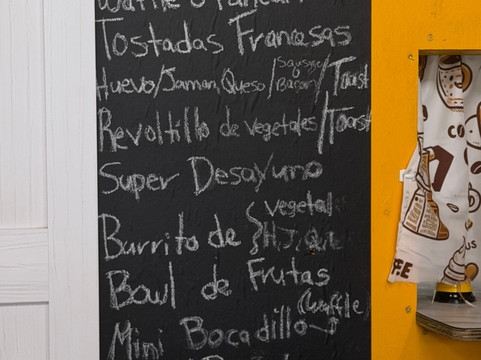 Waffle o Pancake
Tostadas Francesas
Huevo/Jamon, Queso/Sausage Bacon/Toast
Revoltillo de vegetales/Toast
Super Desayuno
Burrito de { vegetal
H,J,Que
Bowl de Frutas
(Waffle)
Mini Bocadillo
CO
FEE